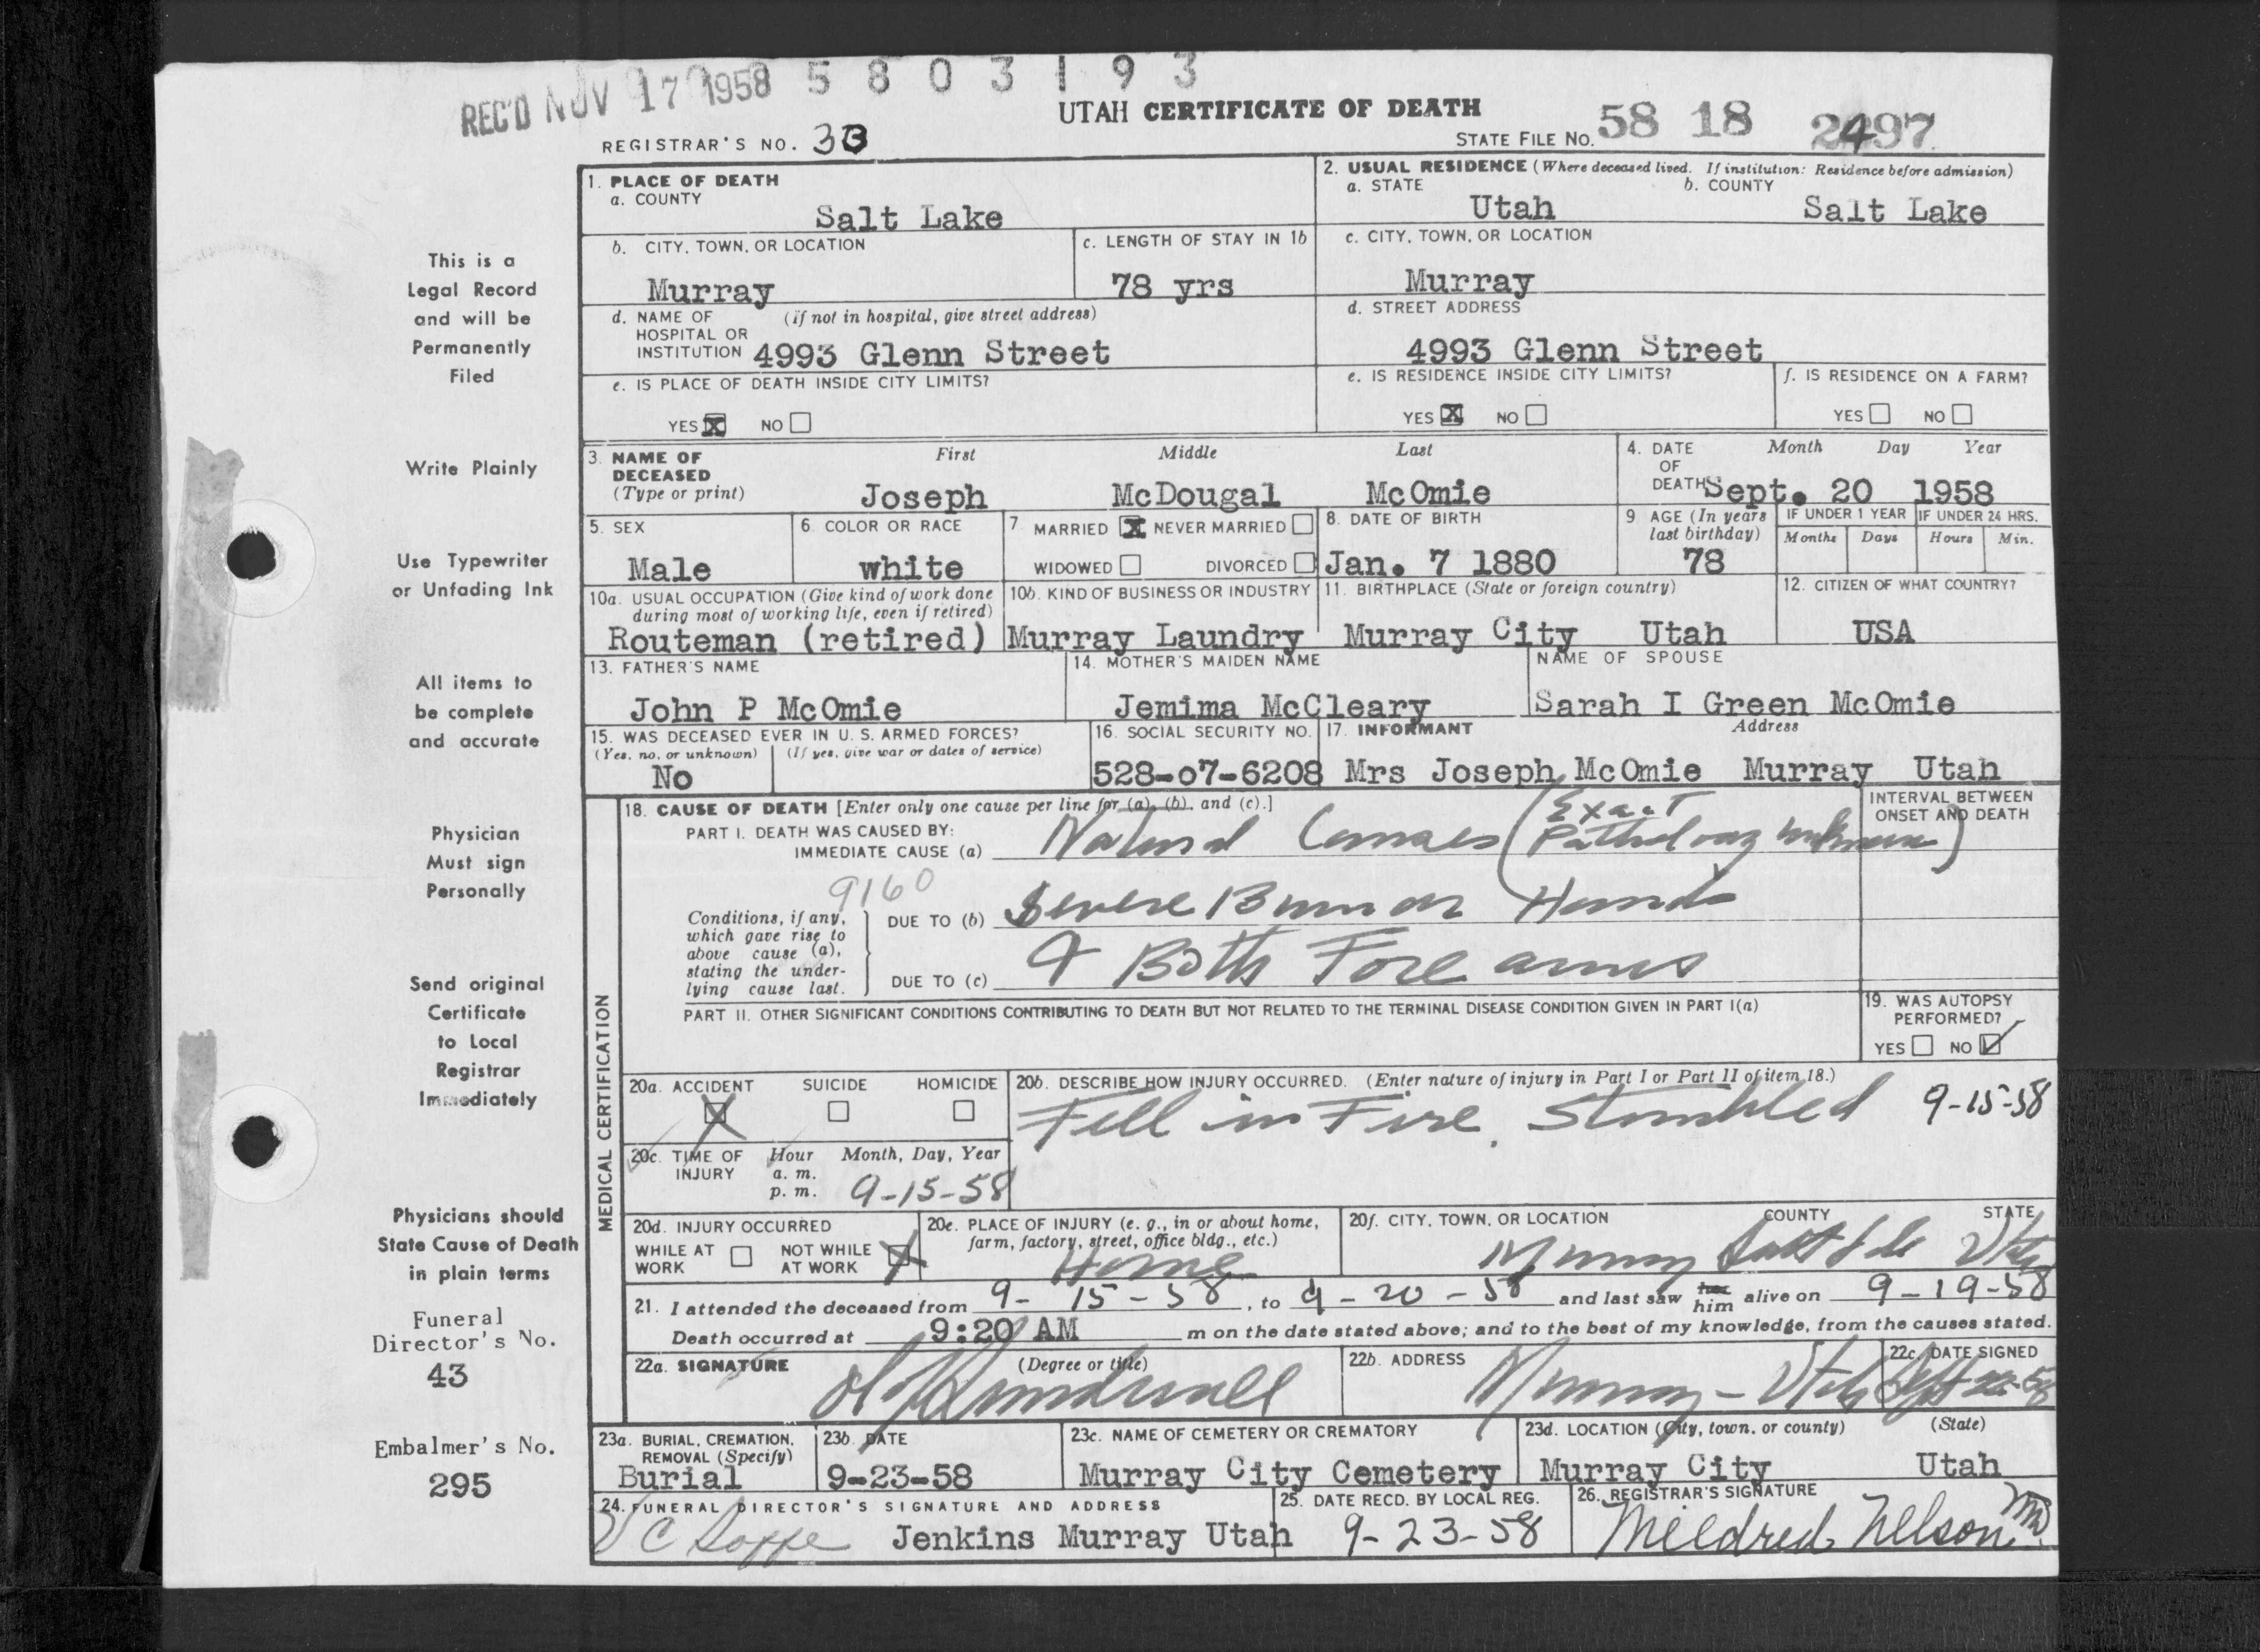 REC'D NOV 17 1958 5 8 0 3 1 9 3
UTAH CERTIFICATE OF DEATH
REGISTRAR'S NO. 33
STATE FILE NO. 58 18 2497
1. PLACE OF DEATH
a. COUNTY
Salt Lake
2. USUAL RESIDENCE (Where deceased lived. If institution: Residence before admission)
a. STATE b. COUNTY
Utah Salt Lake
b. CITY, TOWN, OR LOCATION
Murray
c. LENGTH OF STAY IN 1b
78 yrs
c. CITY, TOWN, OR LOCATION
Murray
d. NAME OF HOSPITAL OR INSTITUTION (if not in hospital, give street address)
4993 Glenn Street
d. STREET ADDRESS
4993 Glenn Street
e. IS PLACE OF DEATH INSIDE CITY LIMITS?
YES X NO
e. IS RESIDENCE INSIDE CITY LIMITS?
YES X NO
f. IS RESIDENCE ON A FARM?
YES NO
3. NAME OF DECEASED (Type or print)
First Middle Last
Joseph McDougal McOmie
4. DATE OF DEATH Month Day Year
Sept. 20 1958
5. SEX
Male
6. COLOR OR RACE
white
7. MARRIED X NEVER MARRIED
WIDOWED DIVORCED
8. DATE OF BIRTH
Jan. 7 1880
9 AGE (In years last birthday)
78
IF UNDER 1 YEAR
Months Days
IF UNDER 24 HRS.
Hours Min.
10a. USUAL OCCUPATION (Give kind of work done during most of working life, even if retired)
Routeman (retired)
10b. KIND OF BUSINESS OR INDUSTRY
Murray Laundry
11. BIRTHPLACE (State or foreign country)
Murray City Utah
12. CITIZEN OF WHAT COUNTRY?
USA
13. FATHER'S NAME
John P McOmie
14. MOTHER'S MAIDEN NAME
Jemima McCleary
NAME OF SPOUSE
Sarah I Green McOmie
15. WAS DECEASED EVER IN U. S. ARMED FORCES?
(Yes, no, or unknown) (If yes, give war or dates of service)
No
16. SOCIAL SECURITY NO.
528-o7-6208
17. INFORMANT Address
Mrs Joseph McOmie Murray Utah
MEDICAL CERTIFICATION
18. CAUSE OF DEATH [Enter only one cause per line for (a), (b), and (c).]
INTERVAL BETWEEN ONSET AND DEATH
PART I. DEATH WAS CAUSED BY:
IMMEDIATE CAUSE (a) Natural Causes (Exact Pathology unknown)
9160
Conditions, if any, which gave rise to above cause (a), stating the underlying cause last.
DUE TO (b) Severe Burn on Hands
DUE TO (c) & Both Fore arms
PART II. OTHER SIGNIFICANT CONDITIONS CONTRIBUTING TO DEATH BUT NOT RELATED TO THE TERMINAL DISEASE CONDITION GIVEN IN PART I(a)
19. WAS AUTOPSY PERFORMED?
YES NO
20a. ACCIDENT SUICIDE HOMICIDE
X
20b. DESCRIBE HOW INJURY OCCURRED. (Enter nature of injury in Part I or Part II of item 18.)
Fell in Fire. Stumbled 9-15-58
20c. TIME OF INJURY Hour a. m. p. m. Month, Day, Year
9-15-58
20d. INJURY OCCURRED
WHILE AT WORK NOT WHILE AT WORK X
20e. PLACE OF INJURY (e. g., in or about home, farm, factory, street, office bldg., etc.)
Home
20f. CITY, TOWN, OR LOCATION COUNTY STATE
Murray Salt Lake Utah
21. I attended the deceased from 9-15-58, to 9-20-58 and last saw her him alive on 9-19-58
Death occurred at 9:20 AM m on the date stated above; and to the best of my knowledge, from the causes stated.
22a. SIGNATURE (Degree or title)
22b. ADDRESS
Murray - Utah
22c. DATE SIGNED
23a. BURIAL, CREMATION, REMOVAL (Specify)
Burial
23b. DATE
9-23-58
23c. NAME OF CEMETERY OR CREMATORY
Murray City Cemetery
23d. LOCATION (City, town, or county) (State)
Murray City Utah
24. FUNERAL DIRECTOR'S SIGNATURE AND ADDRESS
Jenkins Murray Utah
25. DATE RECD. BY LOCAL REG.
9-23-58
26. REGISTRAR'S SIGNATURE
Mildred Nelson
This is a
Legal Record
and will be
Permanently
Filed
Write Plainly
Use Typewriter
or Unfading Ink
All items to
be complete
and accurate
Physician
Must sign
Personally
Send original
Certificate
to Local
Registrar
Immediately
Physicians should
State Cause of Death
in plain terms
Funeral
Director's No.
43
Embalmer's No.
295